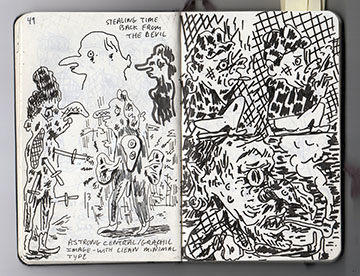 49.
STEALING TIME
BACK FROM
THE DEVIL
A STRONG CENTRAL/GRAPHIC
IMAGE - WITH CLEAN MINIMAL
TYPE